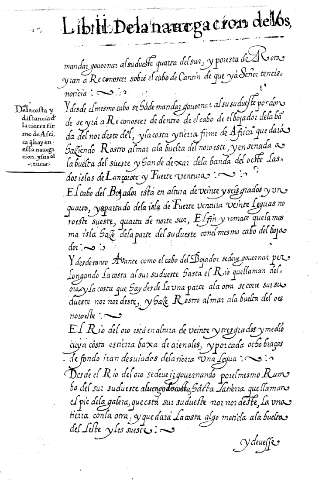 Lib II. De la nauegacion de los,
mandar gouernar al sudueste quarta del sur, y por esta de Rota
yr an a Reconoscer sobre el cabo de Cantin de que ya se hec tenido
noticia
Y desde el mismo cabo se ha de mandar gouernar al susudueste por don
de se yra a Reconoscer de dentro de el cabo de el bojador de la ba
da del nordeste del, y la costa y tierra firme de Africa que da
haziendo Rostro almar ala buelta del noroeste, y ensenada a
la buelta del sueste y han de dexar de la banda del oeste las
dos islas de Lançarote y Fuerte ventura.
El cabo del Bojador esta en altura de veinte y seis grados y un
quarto, y apartado dela isla de Fuerte ventura veinte leguas no
roeste sueste, quarta de norte sur, El fin y remate que la mis
ma isla haze dela parte del sudueste con el mesmo cabo del boja
dor
Y desde nuevo Avante como el cabo del Bojador se deve gouernar per
longando la costa al sur sudueste hasta el Rio que llaman del
oro y la costa que hay desde la una parte ala otra se corre sursu
dueste nor nordeste, y haze Rostro almar ala buelta del oes
noroeste
El Rio del oro esta en altura de veinte y tres grados y medio
cuya costa es tierra baxa de arenales, y por cada ocho braças
de fondo iran desuiados dela tierra una legua
Desde el Rio del oro se deue ir gouernando por el mesmo Rum
bo del sur sudueste al luengo de costa hasta la tierra que llaman
el pie de la galera, que esta sur sudueste nor nordeste, la una
tierra con la otra, y quedara la costa algo metida ala buelta
del Leste y les sueste
Y de uesse
De la costa y
distancia de
la tierra fir
me de Afri
ca que ay en
esta nauega
cion